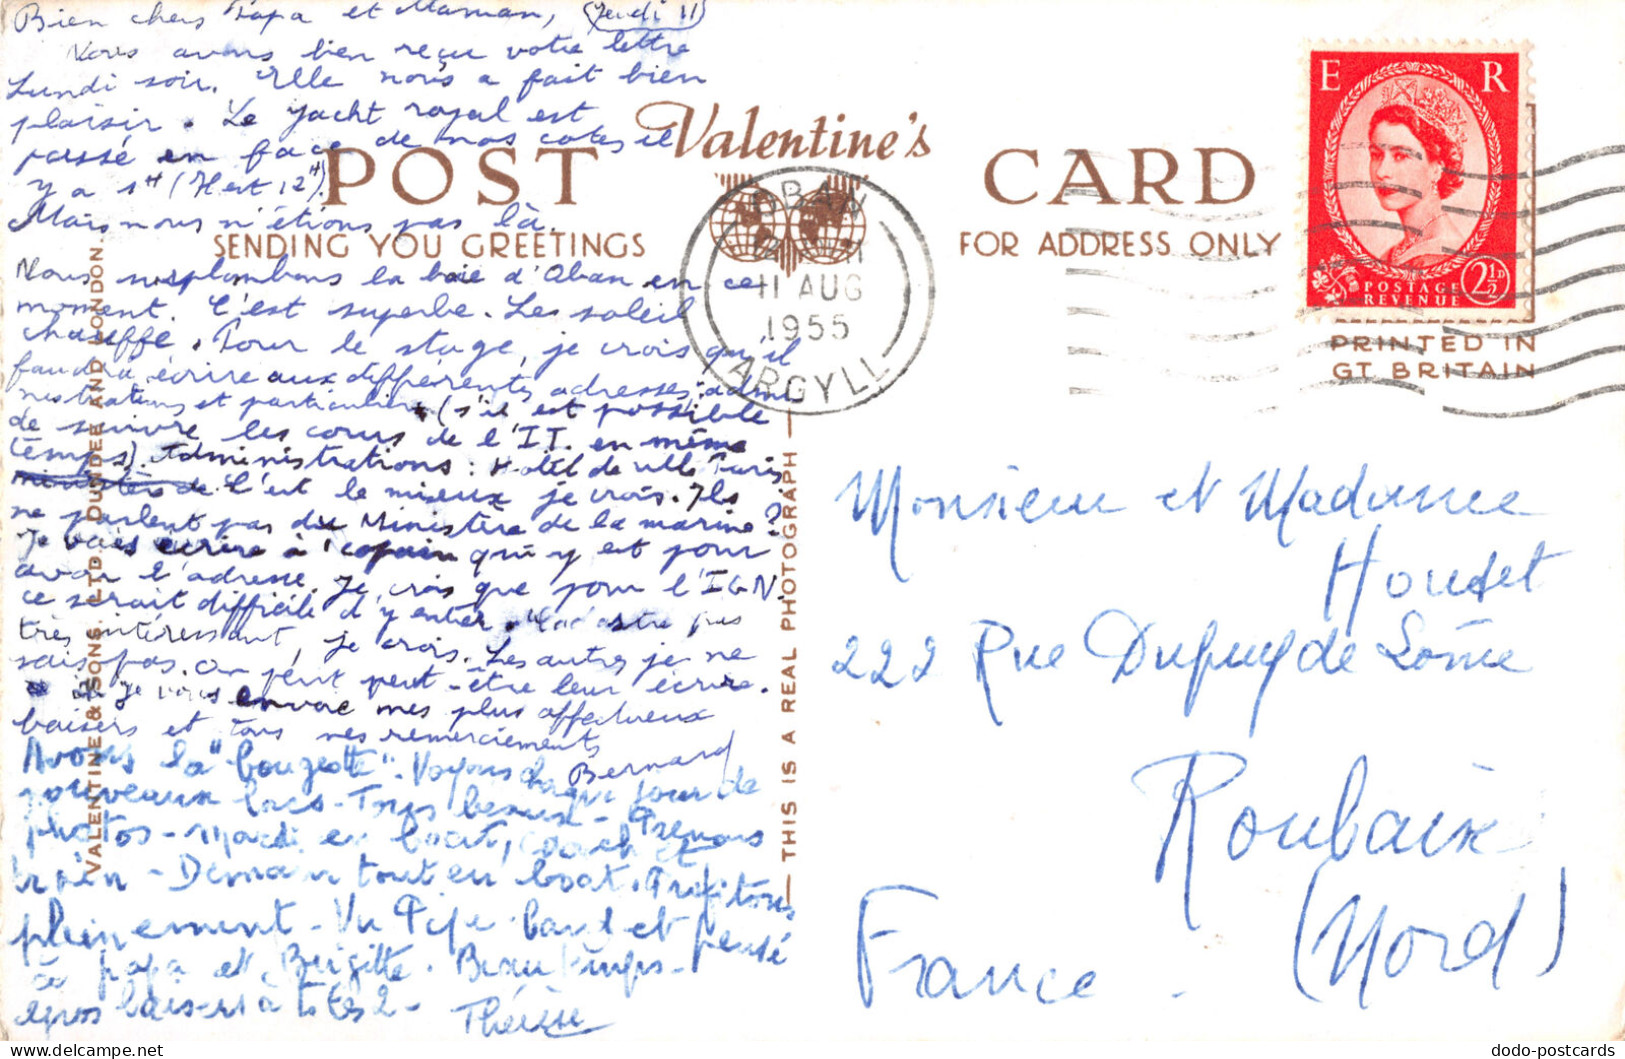 Bien chers Papa et Maman, (Jeudi 11)
Nous avons bien reçu votre lettre
Lundi soir. Elle nous a fait bien
plaisir. Le yacht royal est
passé en face de nos cotes il
y a 1H (Il est 12H)
Mais nous n'étions pas là.
Nous surplombons la baie d'Oban en ce
moment. C'est superbe. Les soleil
chauffe. Pour le stage, je crois qu'il
faudra écrire aux différentes adresses: admi
nistrations et particuliers (s'il est possible
de suivre les cours de l'I.T. en même
temps). Administrations: Hotel de ville Paris
C'est le mieux je crois. Ils
ne parlent pas du Ministère de la marine?
Je vais écrire à 1 copain qui y est pour
avoir l'adresse. Je crois que pour l'IGN.
ce serait difficile d'y entrer. pas
très intéressant, je crois. Les autres je ne
sais pas. On peut peut-être leur écrire.
Je vous envoie mes plus affectueux
baisers et tous mes remerciements
Bernard
Avons la "bougeotte". Voyons chaque jour de
nouveaux lacs - Trops beaux - Prenons
photos - Mardi en boat, coach et
train - Demain tout en boat. Profitons
pleinement - Vu Pipe band et pensé
à papa et Brigitte. Beau temps -
gros baisers à totes 2 -
Thérèse
POST CARD
Valentine's
SENDING YOU GREETINGS
FOR ADDRESS ONLY
OBAN
11 AUG
1955
ARGYLL
E R
POSTAGE
REVENUE
2½D
PRINTED IN
GT BRITAIN
VALENTINE & SONS. LTD. DUNDEE AND LONDON
— THIS IS A REAL PHOTOGRAPH —
Monsieur et Madame
Houdet
222 Rue Dupuy de Lôme
Roubaix
(Nord)
France
dodo-postcards